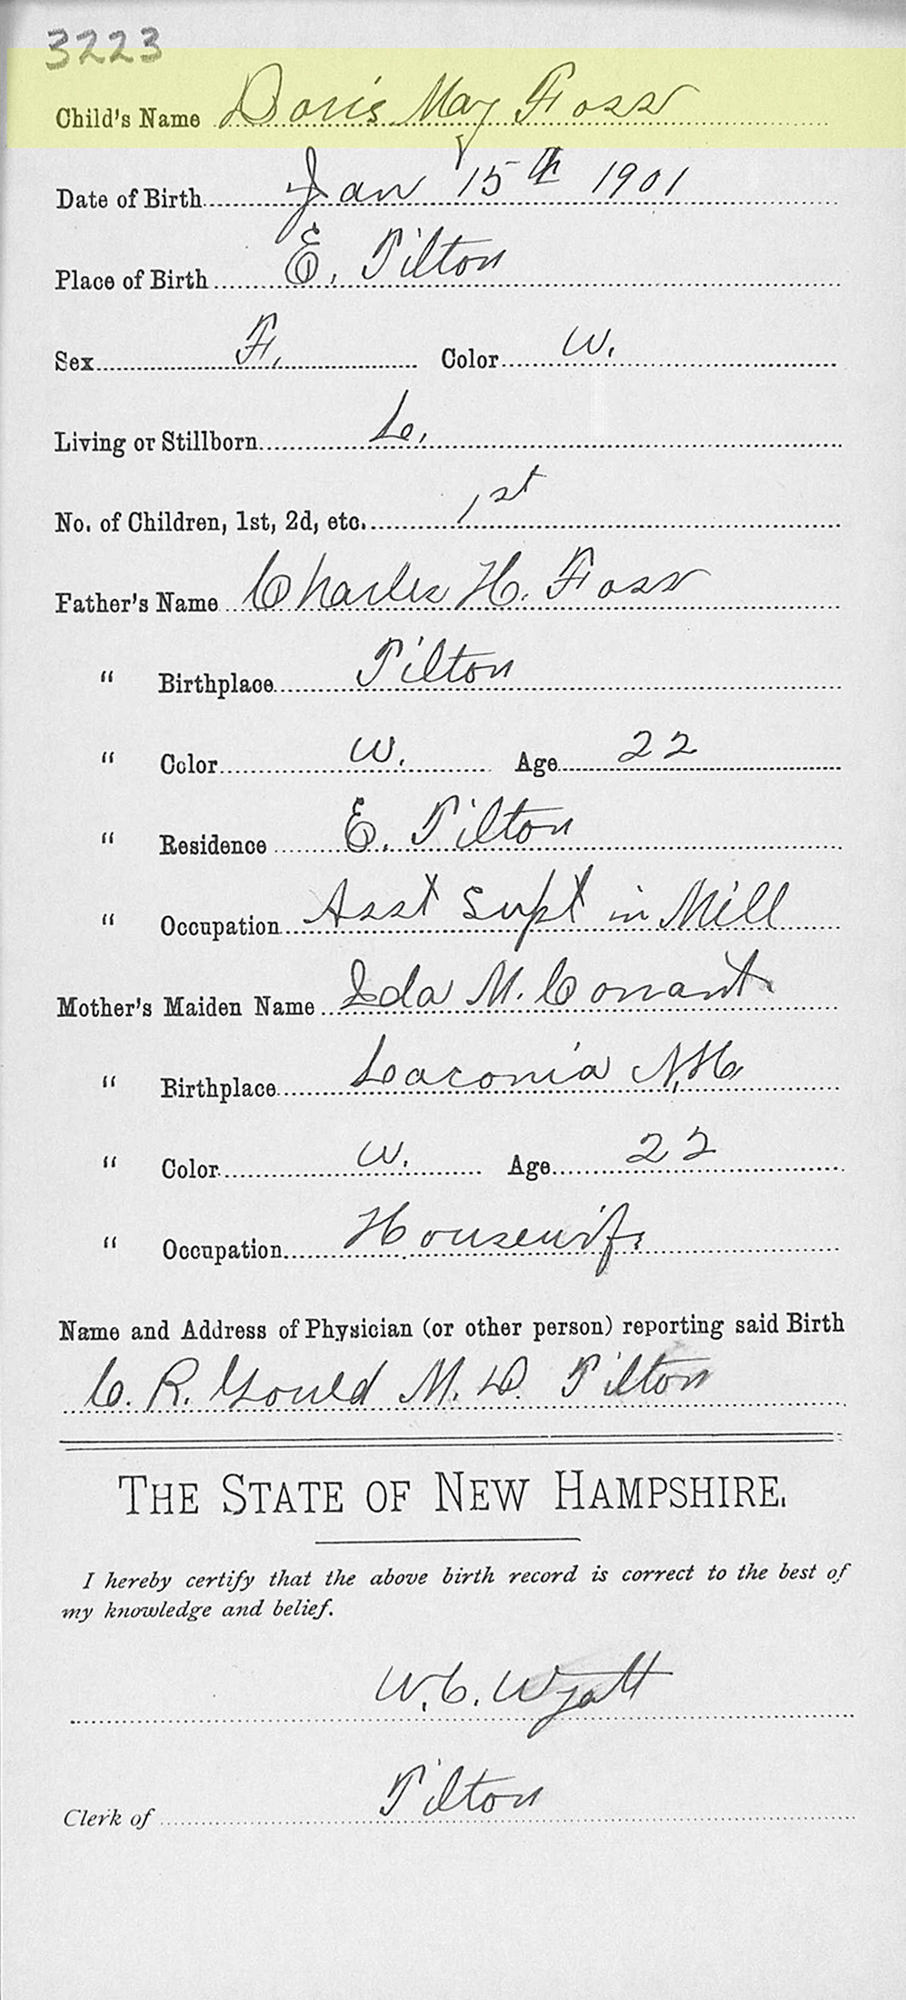 3223
Child's Name Doris May Foss
Date of Birth Jan 15th 1901
Place of Birth E. Tilton
Sex F. Color W.
Living or Stillborn L.
No. of Children, 1st, 2d, etc. 1st
Father's Name Charles H. Foss
" Birthplace Tilton
" Color W. Age 22
" Residence E. Tilton
" Occupation Asst Supt in Mill
Mother's Maiden Name Ida M. Conant
" Birthplace Laconia N.H.
" Color W. Age 22
" Occupation Housewife
Name and Address of Physician (or other person) reporting said Birth
C. R. Gould M. D. Tilton
THE STATE OF NEW HAMPSHIRE.
I hereby certify that the above birth record is correct to the best of
my knowledge and belief.
W. C. Wyatt
Clerk of Tilton